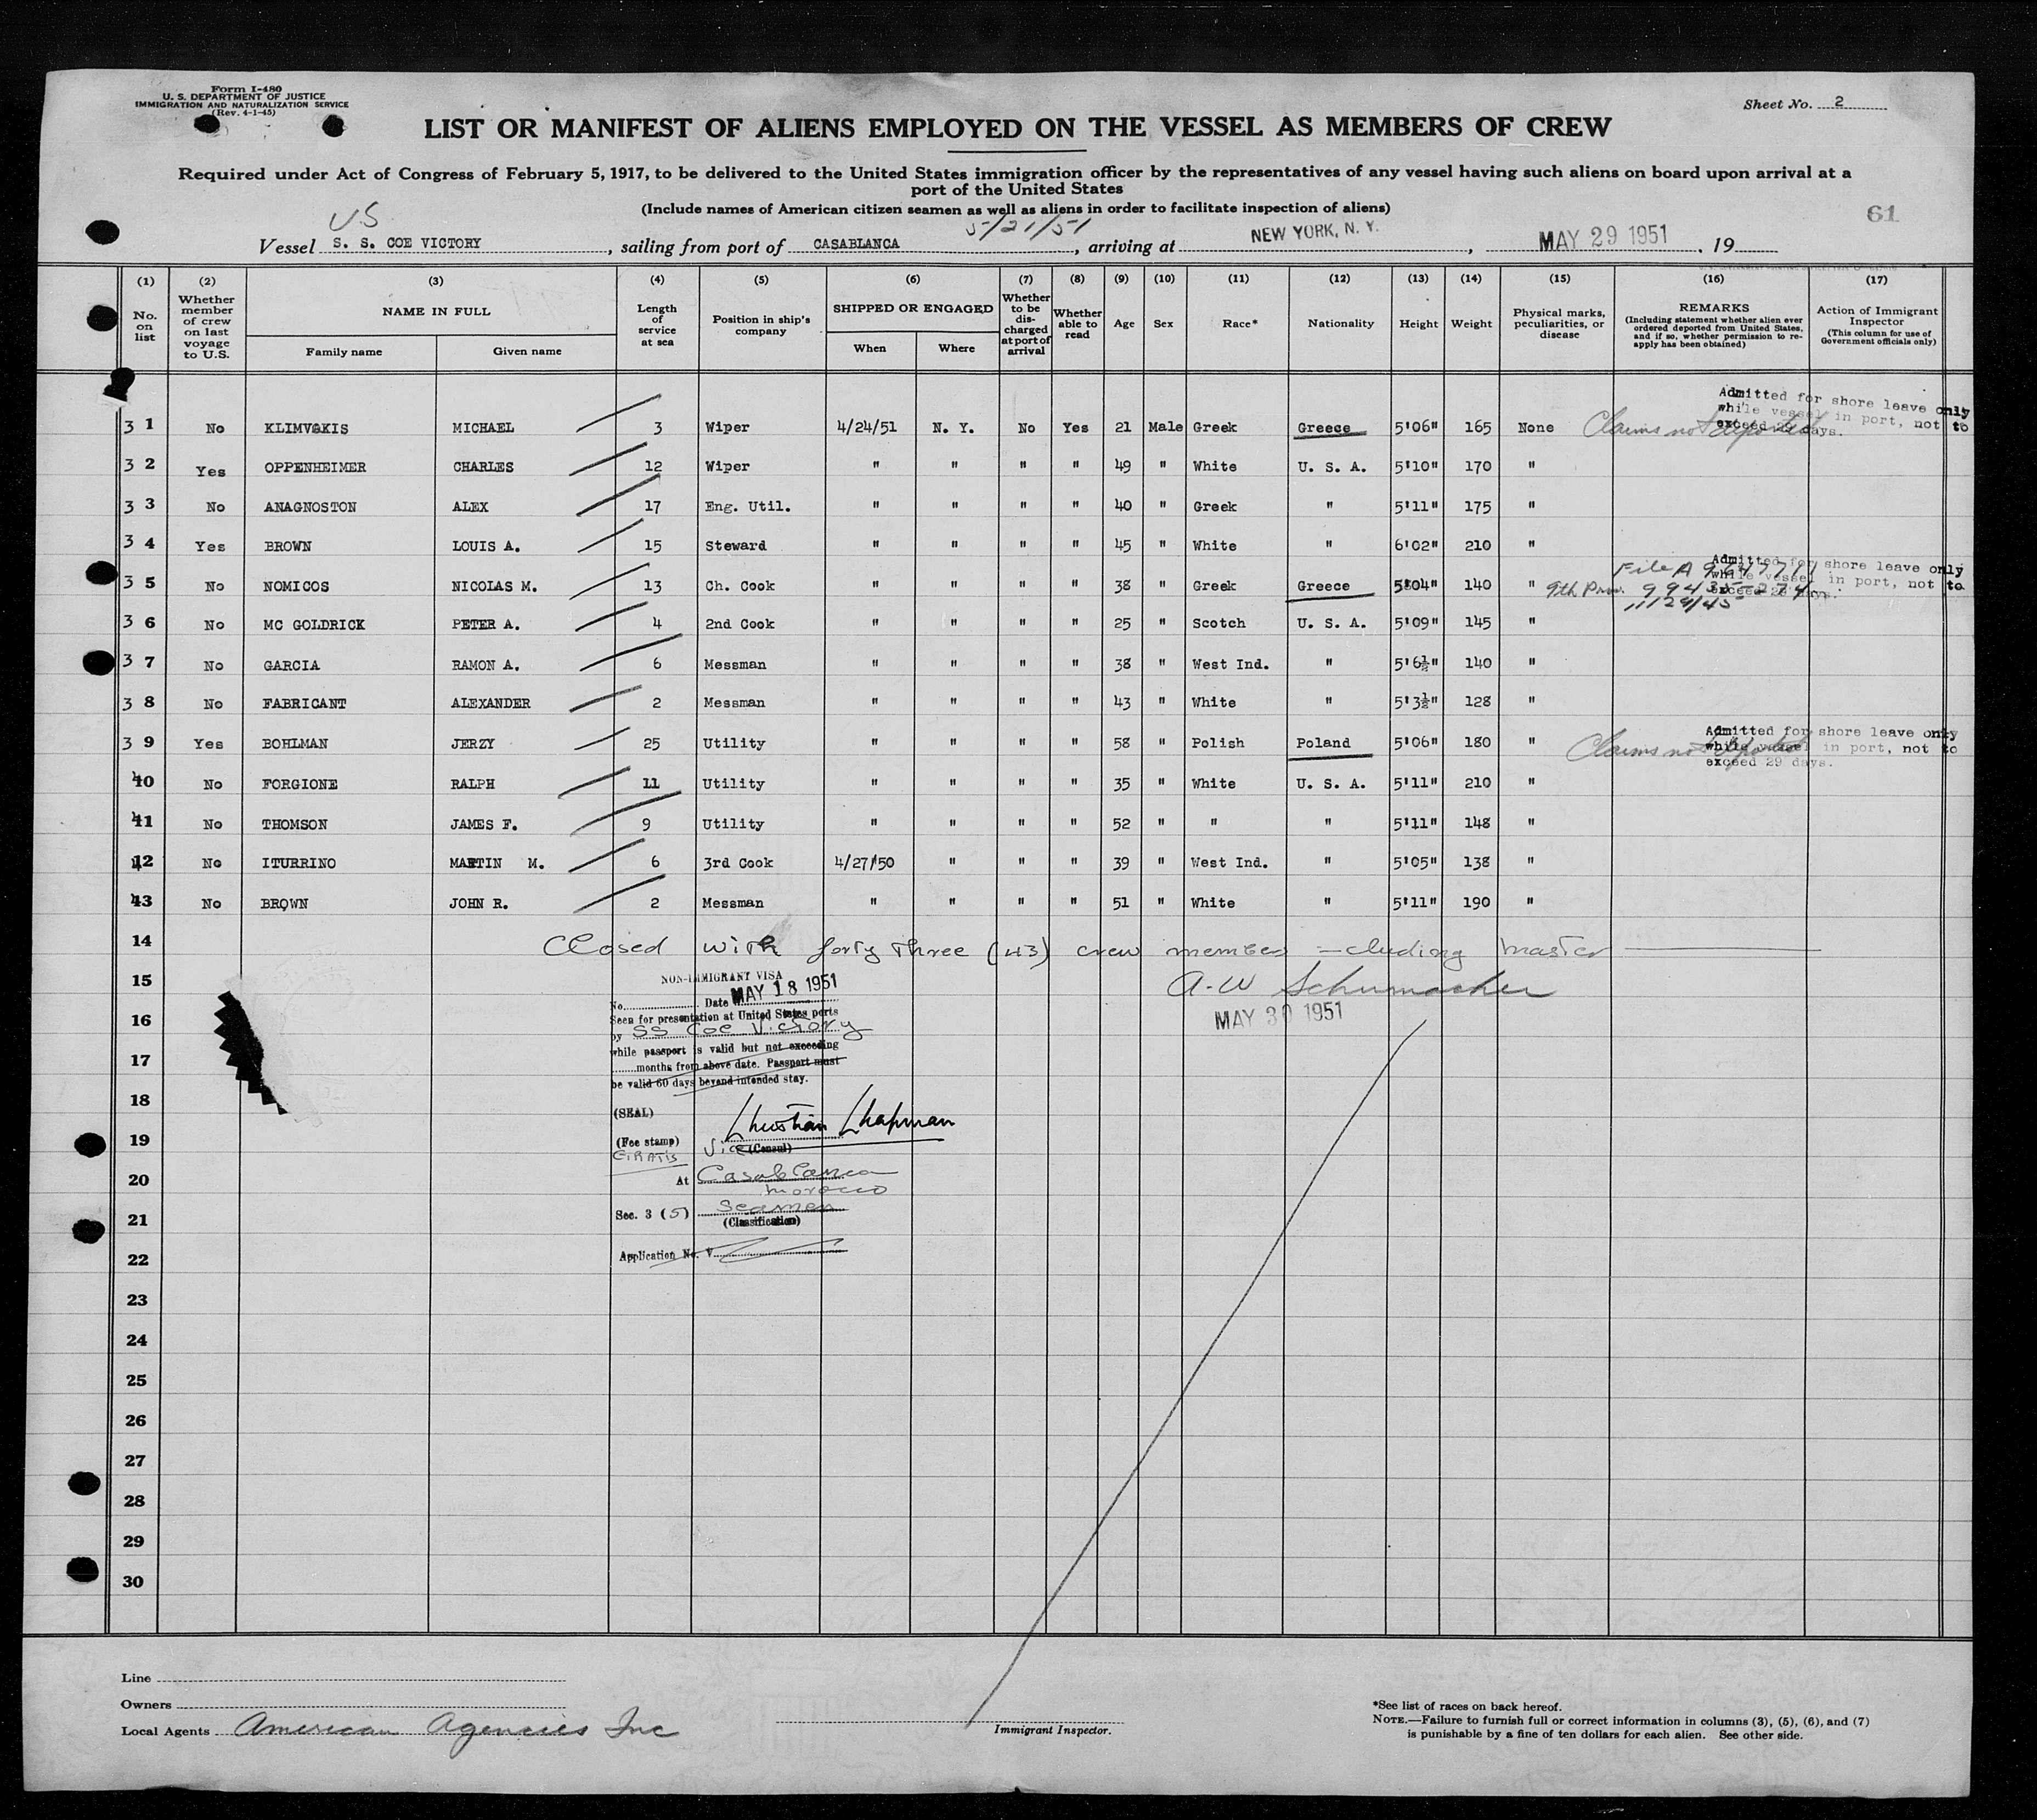 Form I-480
U. S. DEPARTMENT OF JUSTICE
IMMIGRATION AND NATURALIZATION SERVICE
(Rev. 4-1-45)
Sheet No. 2
LIST OR MANIFEST OF ALIENS EMPLOYED ON THE VESSEL AS MEMBERS OF CREW
Required under Act of Congress of February 5, 1917, to be delivered to the United States immigration officer by the representatives of any vessel having such aliens on board upon arrival at a
port of the United States
(Include names of American citizen seamen as well as aliens in order to facilitate inspection of aliens)
61
US
5/21/51
Vessel S. S. COE VICTORY, sailing from port of CASABLANCA, arriving at NEW YORK, N. Y., MAY 29 1951, 19
(1) No. on list
(2) Whether member of crew on last voyage to U.S.
(3) NAME IN FULL Family name Given name
(4) Length of service at sea
(5) Position in ship's company
(6) SHIPPED OR ENGAGED When Where
(7) Whether to be discharged at port of arrival
(8) Whether able to read
(9) Age
(10) Sex
(11) Race*
(12) Nationality
(13) Height
(14) Weight
(15) Physical marks, peculiarities, or disease
(16) REMARKS (Including statement whether alien ever ordered deported from United States, and if so, whether permission to reapply has been obtained)
(17) Action of Immigrant Inspector (This column for use of Government officials only)
31 No KLIMVAKIS MICHAEL 3 Wiper 4/24/51 N. Y. No Yes 21 Male Greek Greece 5'06" 165 None Claims not deported Admitted for shore leave only while vessel in port, not to exceed 29 days.
32 Yes OPPENHEIMER CHARLES 12 Wiper " " " " 49 " White U. S. A. 5'10" 170 "
33 No ANAGNOSTON ALEX 17 Eng. Util. " " " " 40 " Greek " 5'11" 175 "
34 Yes BROWN LOUIS A. 15 Steward " " " " 45 " White " 6'02" 210 "
35 No NOMICOS NICOLAS M. 13 Ch. Cook " " " " 38 " Greek Greece 5'04" 140 " 9th Prov. File A Admitted for shore leave only while vessel in port, not to exceed 29 days. 11/24/45
36 No MC GOLDRICK PETER A. 4 2nd Cook " " " " 25 " Scotch U. S. A. 5'09" 145 "
37 No GARCIA RAMON A. 6 Messman " " " " 38 " West Ind. " 5'6½" 140 "
38 No FABRICANT ALEXANDER 2 Messman " " " " 43 " White " 5'3½" 128 "
39 Yes BOHLMAN JERZY 25 Utility " " " " 58 " Polish Poland 5'06" 180 " Claims not deported Admitted for shore leave only while vessel in port, not to exceed 29 days.
40 No FORGIONE RALPH 11 Utility " " " " 35 " White U. S. A. 5'11" 210 "
41 No THOMSON JAMES F. 9 Utility " " " " 52 " " " 5'11" 148 "
42 No ITURRINO MARTIN M. 6 3rd Cook 4/27/50 " " " 39 " West Ind. " 5'05" 138 "
43 No BROWN JOHN R. 2 Messman " " " " 51 " White " 5'11" 190 "
14 Closed with forty three (43) crew members cluding master
15 A. W Schumacher
MAY 30 1951
16
17
18
19
20
21
22
23
24
25
26
27
28
29
30
NON-IMMIGRANT VISA
No. Date MAY 18 1951
Seen for presentation at United States ports
by SS Coe Victory
while passport is valid but not exceeding
months from above date. Passport must
be valid 60 days beyond intended stay.
(SEAL)
Christian Chapman
(Fee stamp) Vice (Consul)
GRATIS
At Casablanca
Morocco
Sec. 3 (5) Seamen
(Classification)
Application No. V
Line
Owners
Local Agents American Agencies Inc
Immigrant Inspector.
*See list of races on back hereof.
NOTE.—Failure to furnish full or correct information in columns (3), (5), (6), and (7)
is punishable by a fine of ten dollars for each alien. See other side.